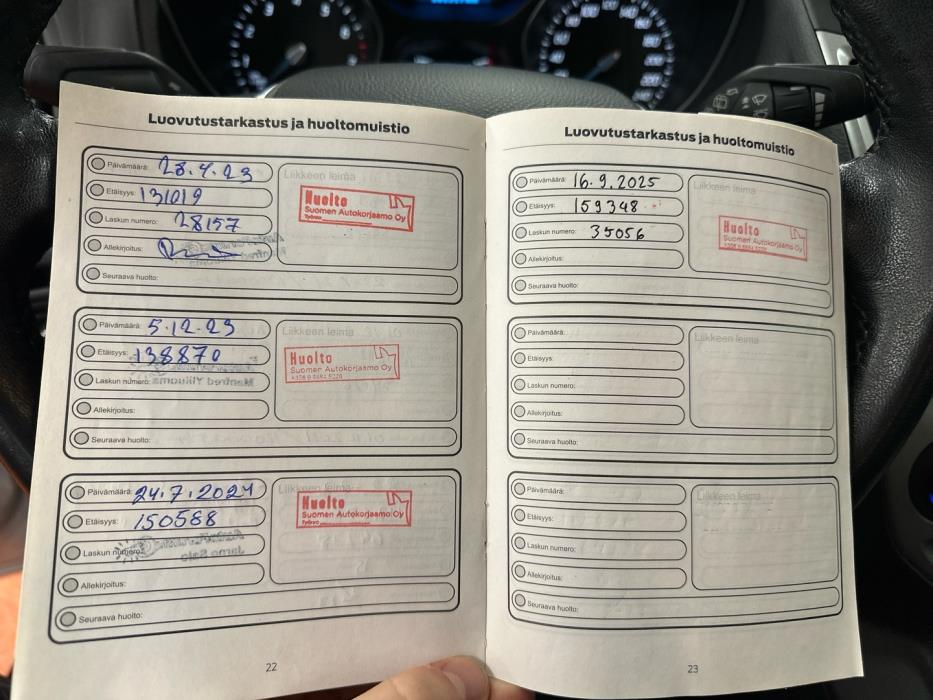 Luovutustarkastus ja huoltomuistio
Päivämäärä: 28.4.23
Etäisyys: 131019
Laskun numero: 28157
Allekirjoitus:
Seuraava huolto:
Liikkeen leima
Huolto
Suomen Autokorjaamo Oy
Päivämäärä: 5.12.23
Etäisyys: 138870
Laskun numero:
Allekirjoitus:
Seuraava huolto:
Liikkeen leima
Huolto
Suomen Autokorjaamo Oy
Päivämäärä: 24.7.2024
Etäisyys: 150588
Laskun numero:
Allekirjoitus:
Seuraava huolto:
Liikkeen leima
Huolto
Suomen Autokorjaamo Oy
22
Luovutustarkastus ja huoltomuistio
Päivämäärä: 16.9.2025
Etäisyys: 159348
Laskun numero: 35056
Allekirjoitus:
Seuraava huolto:
Liikkeen leima
Huolto
Suomen Autokorjaamo Oy
Päivämäärä:
Etäisyys:
Laskun numero:
Allekirjoitus:
Seuraava huolto:
Liikkeen leima
Päivämäärä:
Etäisyys:
Laskun numero:
Allekirjoitus:
Seuraava huolto:
Liikkeen leima
23